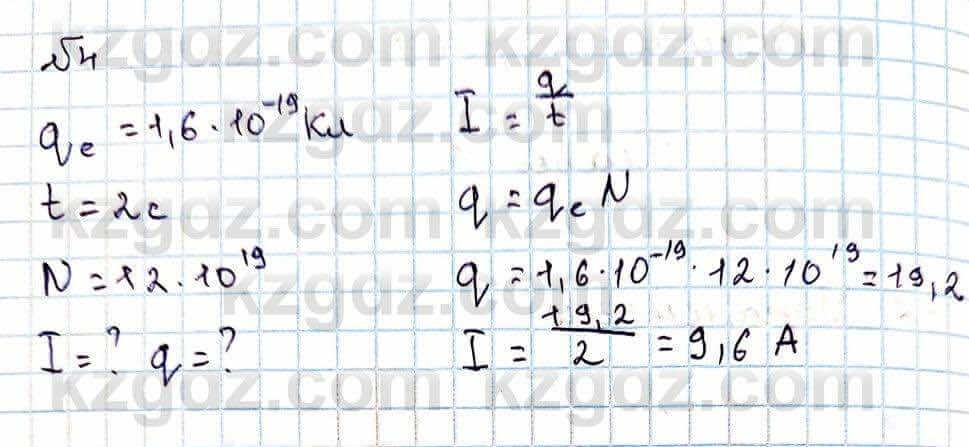 №4
qe = 1,6 · 10⁻¹⁹ Кл
t = 2 с
N = 12 · 10¹⁹
I = ? q = ?
I = q/t
q = qe N
q = 1,6 · 10⁻¹⁹ · 12 · 10¹⁹ = 19,2
I = 19,2/2 = 9,6 А
kzgdz.com kzgdz.com
kzgdz.com
kzgdz.com kzgdz.com
kzgdz.com
kzgdz.com kzgdz.com